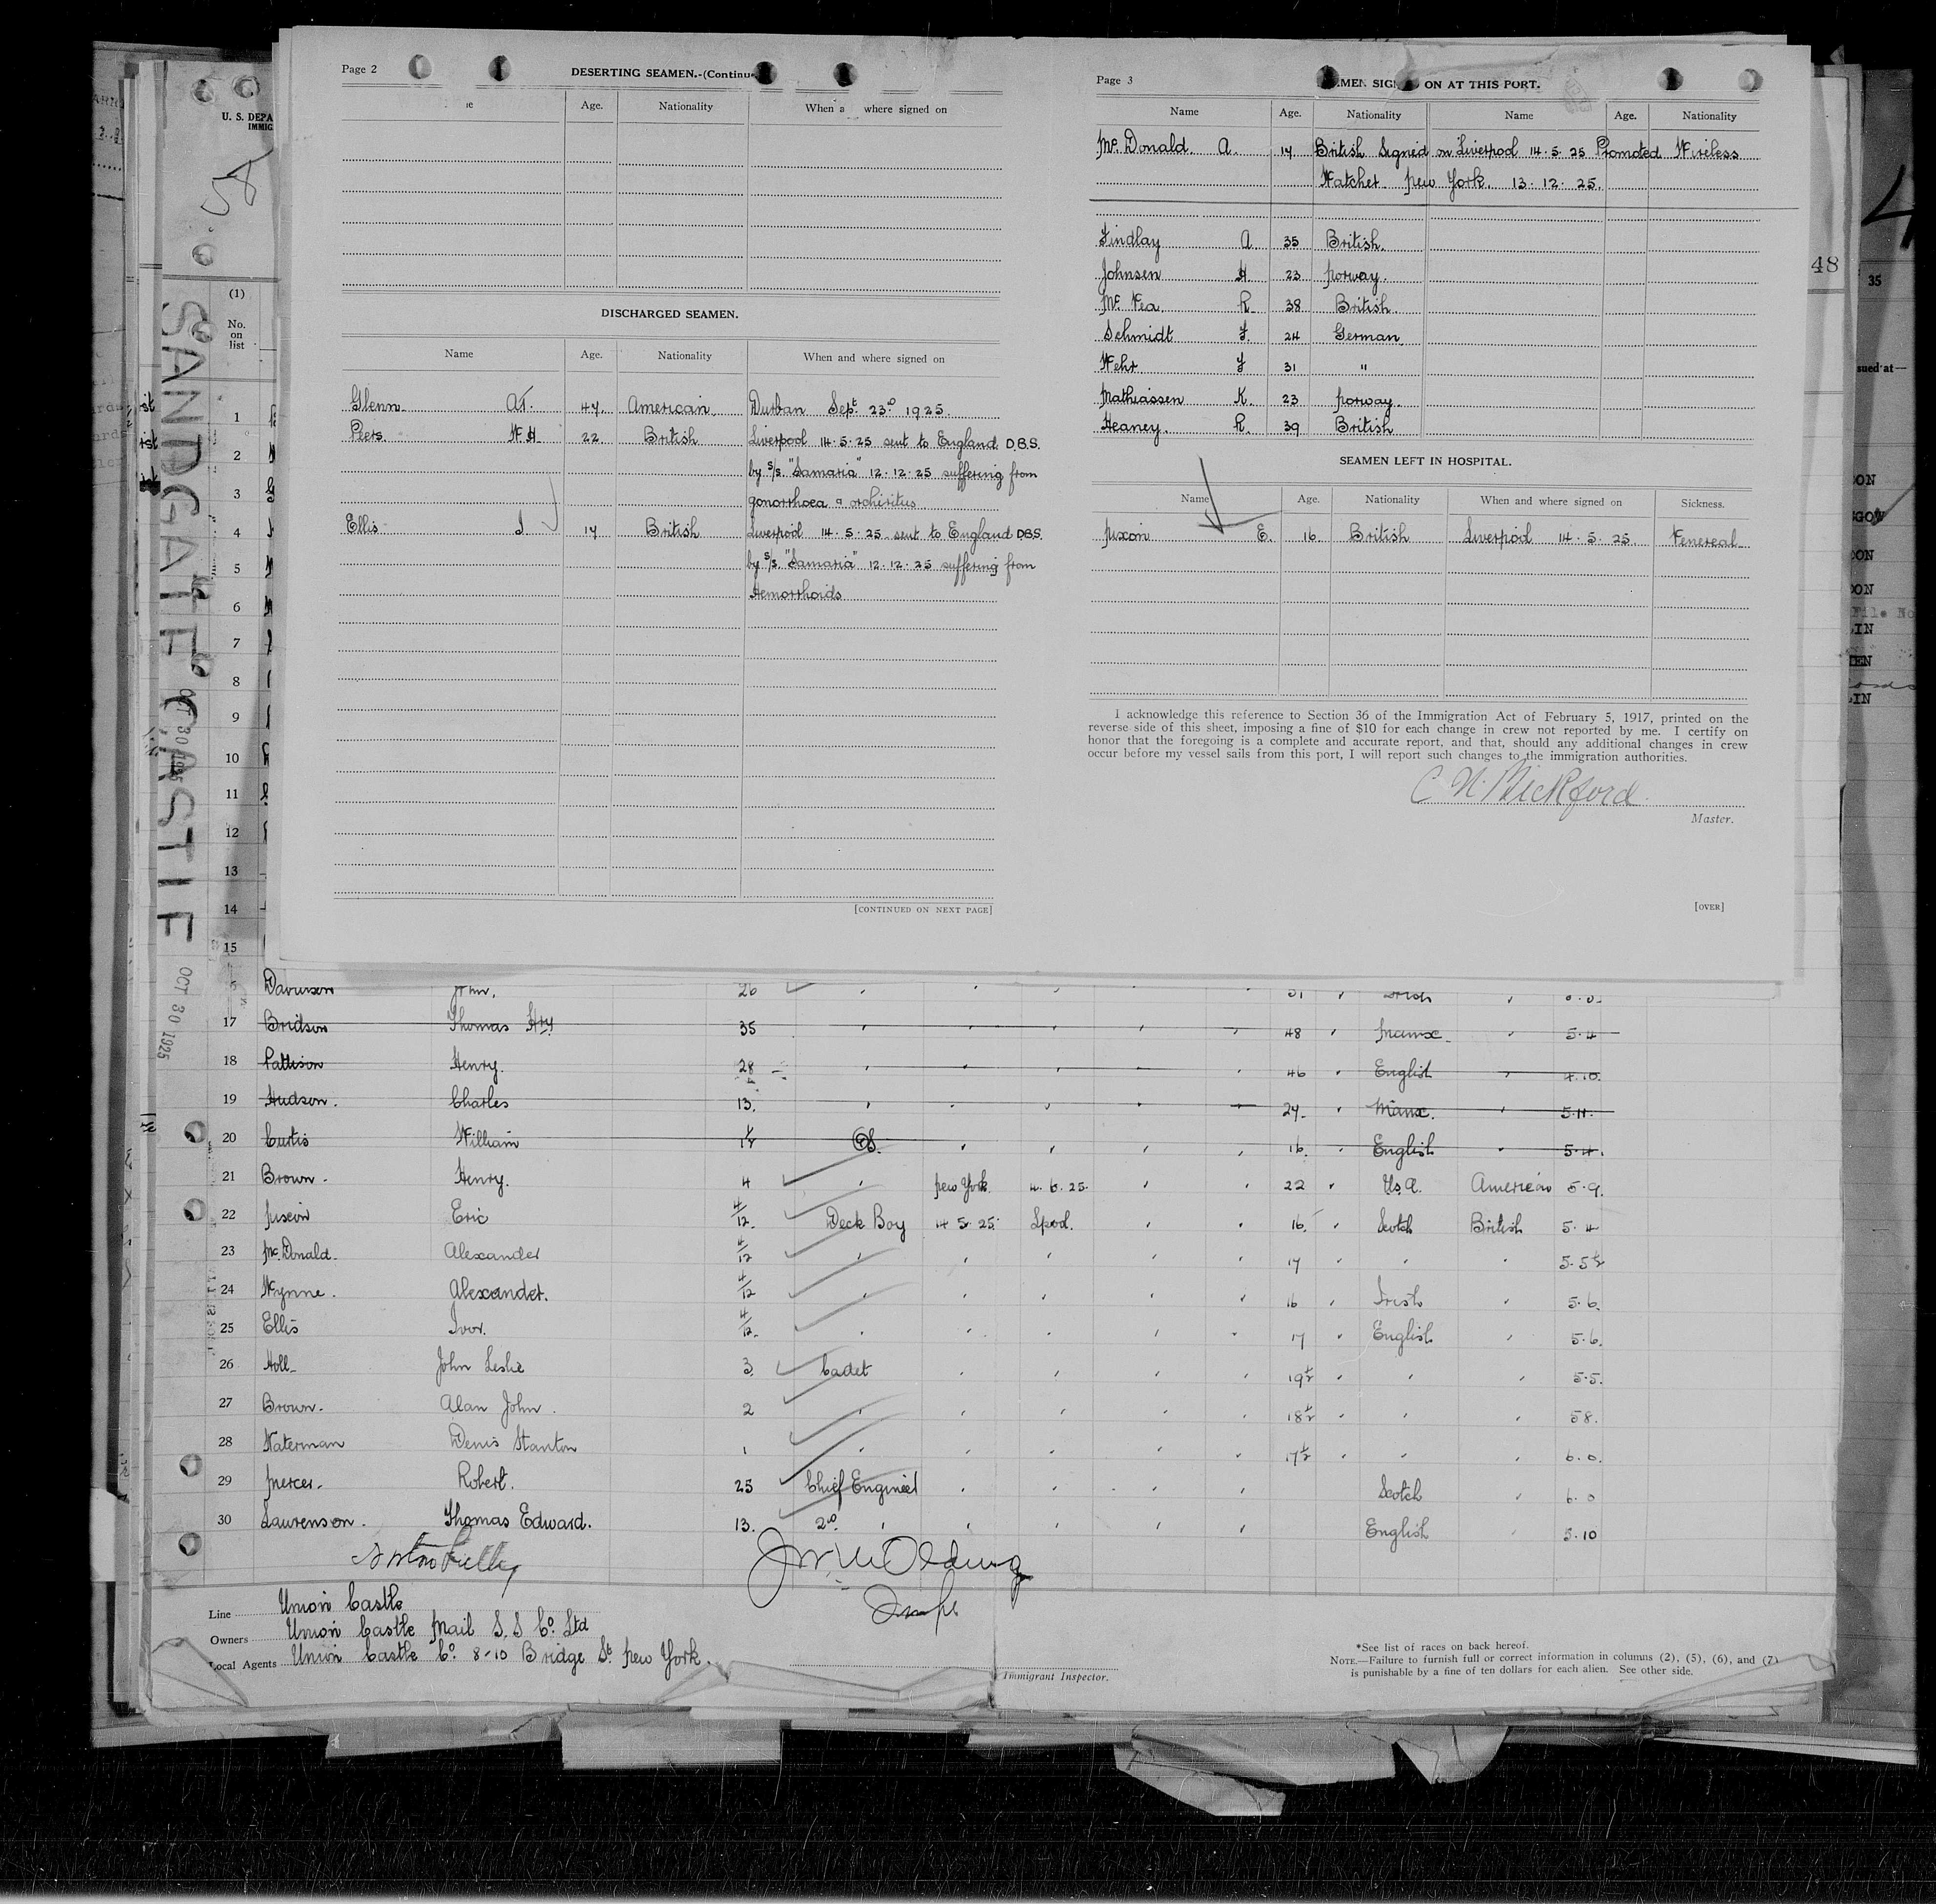 Page 2
DESERTING SEAMEN.-(Continue
Age. Nationality When a where signed on
DISCHARGED SEAMEN.
Name Age. Nationality When and where signed on
Glenn 47 American Durban Sept 23rd 1925.
Peers W H 22 British Liverpool 14.5.25 sent to England D.B.S.
by S/S. "Samaria" 12.12.25 suffering from
gonorrhoea & orchiritus
Ellis I 17 British Liverpool 14.5.25 sent to England D.B.S.
by S/S. "Samaria" 12.12.25 suffering from
Hemorrhoids
[CONTINUED ON NEXT PAGE]
Page 3
MEN SIG ON AT THIS PORT.
Name Age. Nationality Name Age. Nationality
Mc Donald. A. 17 British Signed on Liverpool 14.5.25 Promoted Wireless
Watcher New York. 13.12.25.
Findlay A 35 British.
Johnsen H 23 Norway.
Mc Vea. R. 38 British.
Schmidt F. 24 German
Wehr F 31 "
Mathiassen K. 23 Norway.
Heaney. R. 39 British
SEAMEN LEFT IN HOSPITAL.
Name Age. Nationality When and where signed on Sickness.
Nixon E. 16. British Liverpool 14.5.25. Venereal
I acknowledge this reference to Section 36 of the Immigration Act of February 5, 1917, printed on the
reverse side of this sheet, imposing a fine of $10 for each change in crew not reported by me. I certify on
honor that the foregoing is a complete and accurate report, and that, should any additional changes in crew
occur before my vessel sails from this port, I will report such changes to the immigration authorities.
Master.
[OVER]
U. S. DEPA
IMMIG
58
SANDGATE CASTLE
OCT 30 1925
OCT 30 1925
48
35
sued at—
(1)
No.
on
list
1
2
3
4
5
6
7
8
9
10
11
12
13
14
15
Davidson John. 26
17 Bridson Thomas Hry 35 48 Manx 5.4
18 Pattison Henry. 28 46 English
19 Hudson. Charles 13. 27 Manx. 5.11.
20 Curtis William 1½ O.S. 16. English 5.4.
21 Brown. Henry. 4 New York. 4.6.25. 22 U.S.A. American 5.9.
22 Nixon Eric 4/12 Deck Boy 14 5 25. Lpool. 16. Scotch British 5.4
23 Mc Donald. Alexander 4/12 17 5.5½
24 Wynne. Alexander. 4/12 16 Irish 5.6.
25 Ellis Ivor. 4/12 17 English 5.6.
26 Holl John Leslie 3 Cadet 19½ 5.5.
27 Brown. Alan John. 2 18½ 5 8.
28 Waterman Denis Stanton 1 17½ 6.0.
29 Mercer. Robert. 25 Chief Engineer Scotch 6.0
30 Laurenson. Thomas Edward. 13. 2nd English 5.10
Line Union Castle
Owners Union Castle Mail S.S Co. Ltd
Local Agents Union Castle Co. 8-10 Bridge St. New York.
Immigrant Inspector.
*See list of races on back hereof.
NOTE.—Failure to furnish full or correct information in columns (2), (5), (6), and (7)
is punishable by a fine of ten dollars for each alien. See other side.